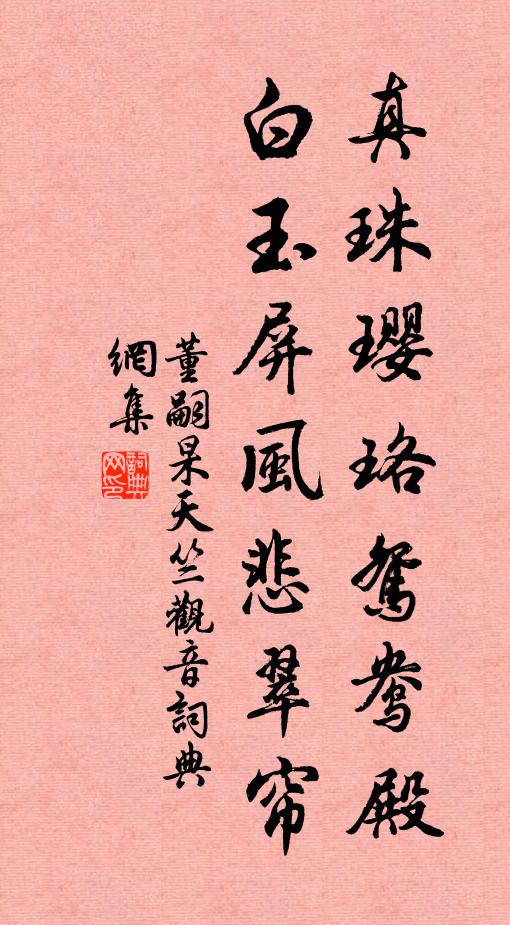 真珠瓔珞鴛鴦殿
白玉屏風悲翠帘
董嗣杲天竺觀音詞典
網集
詞典
网印